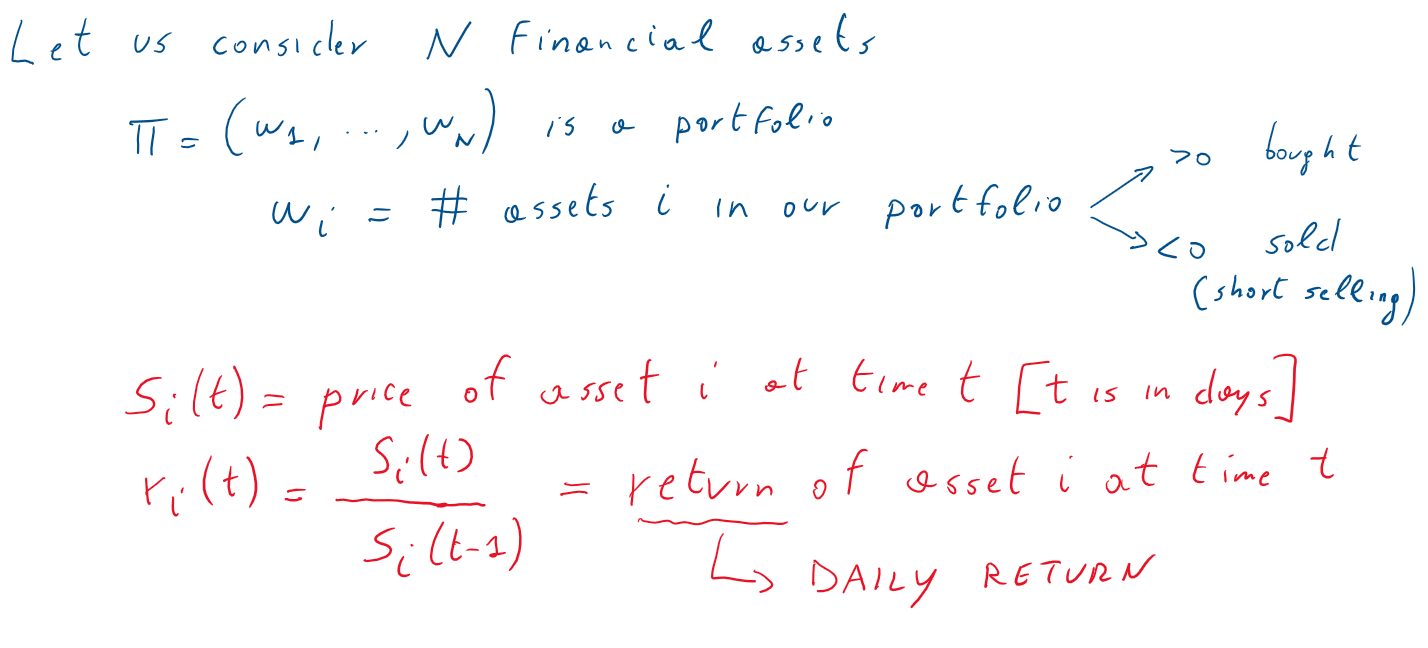 Let us consider N Financial assets
Π = (w₁, ..., w_N) is a portfolio
w_i = # assets i in our portfolio
>0 bought
<0 sold
(short selling)
S_i(t) = price of asset i at time t [t is in days]
r_i(t) = S_i(t) / S_i(t-1) = return of asset i at time t
DAILY RETURN